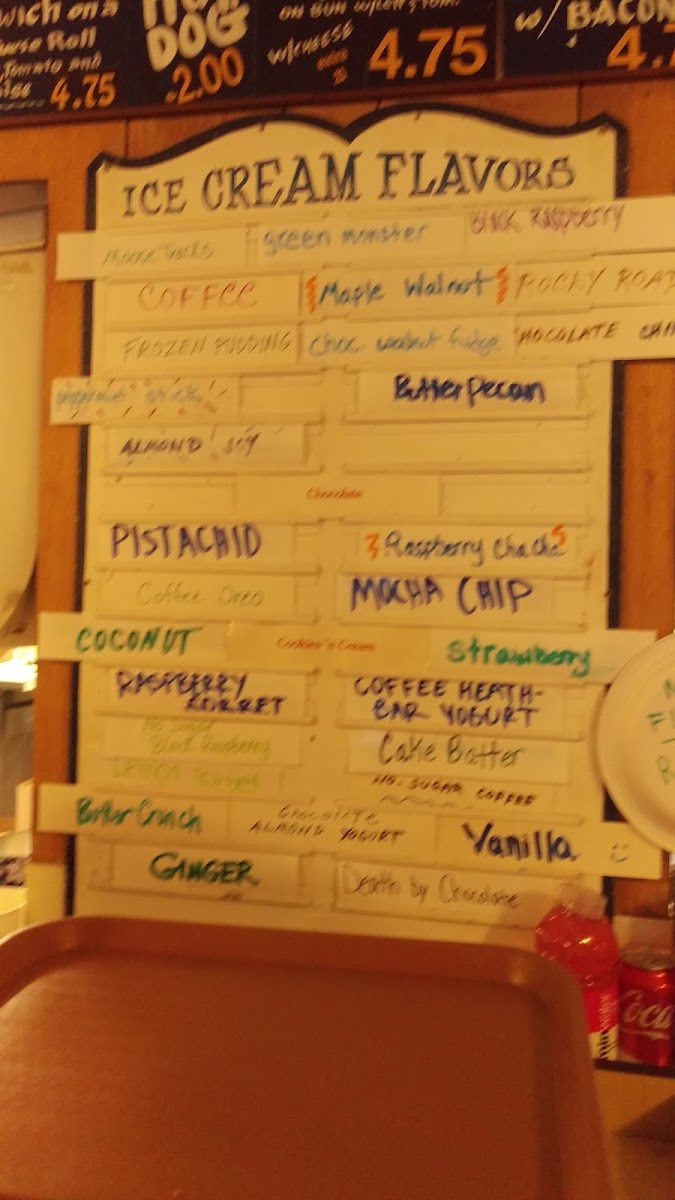 wich on a
Roll
Tomato and
4.75
DOG
2.00
ON BUN
W/CHEESE
4.75
w/ BACON
4.7
ICE CREAM FLAVORS
Moose Tracks green monster Black Raspberry
COFFEE Maple Walnut ROCKY ROAD
FROZEN PUDDING Choc. walnut fudge HOCOLATE CHI
peppermint stick Butter Pecan
ALMOND JOY
Chocolate
PISTACHIO Raspberry ChaCha
Coffee Oreo MOCHA CHIP
COCONUT Cookies 'n Cream Strawberry
RASPBERRY SORBET COFFEE HEATH-
BAR YOGURT
No Sugar
Black Raspberry Cake Batter
Lemon Sorbet NO. SUGAR COFFEE
Butter Crunch CHOCOLATE
ALMOND YOGURT Vanilla
GINGER Death by Chocolate
Coca